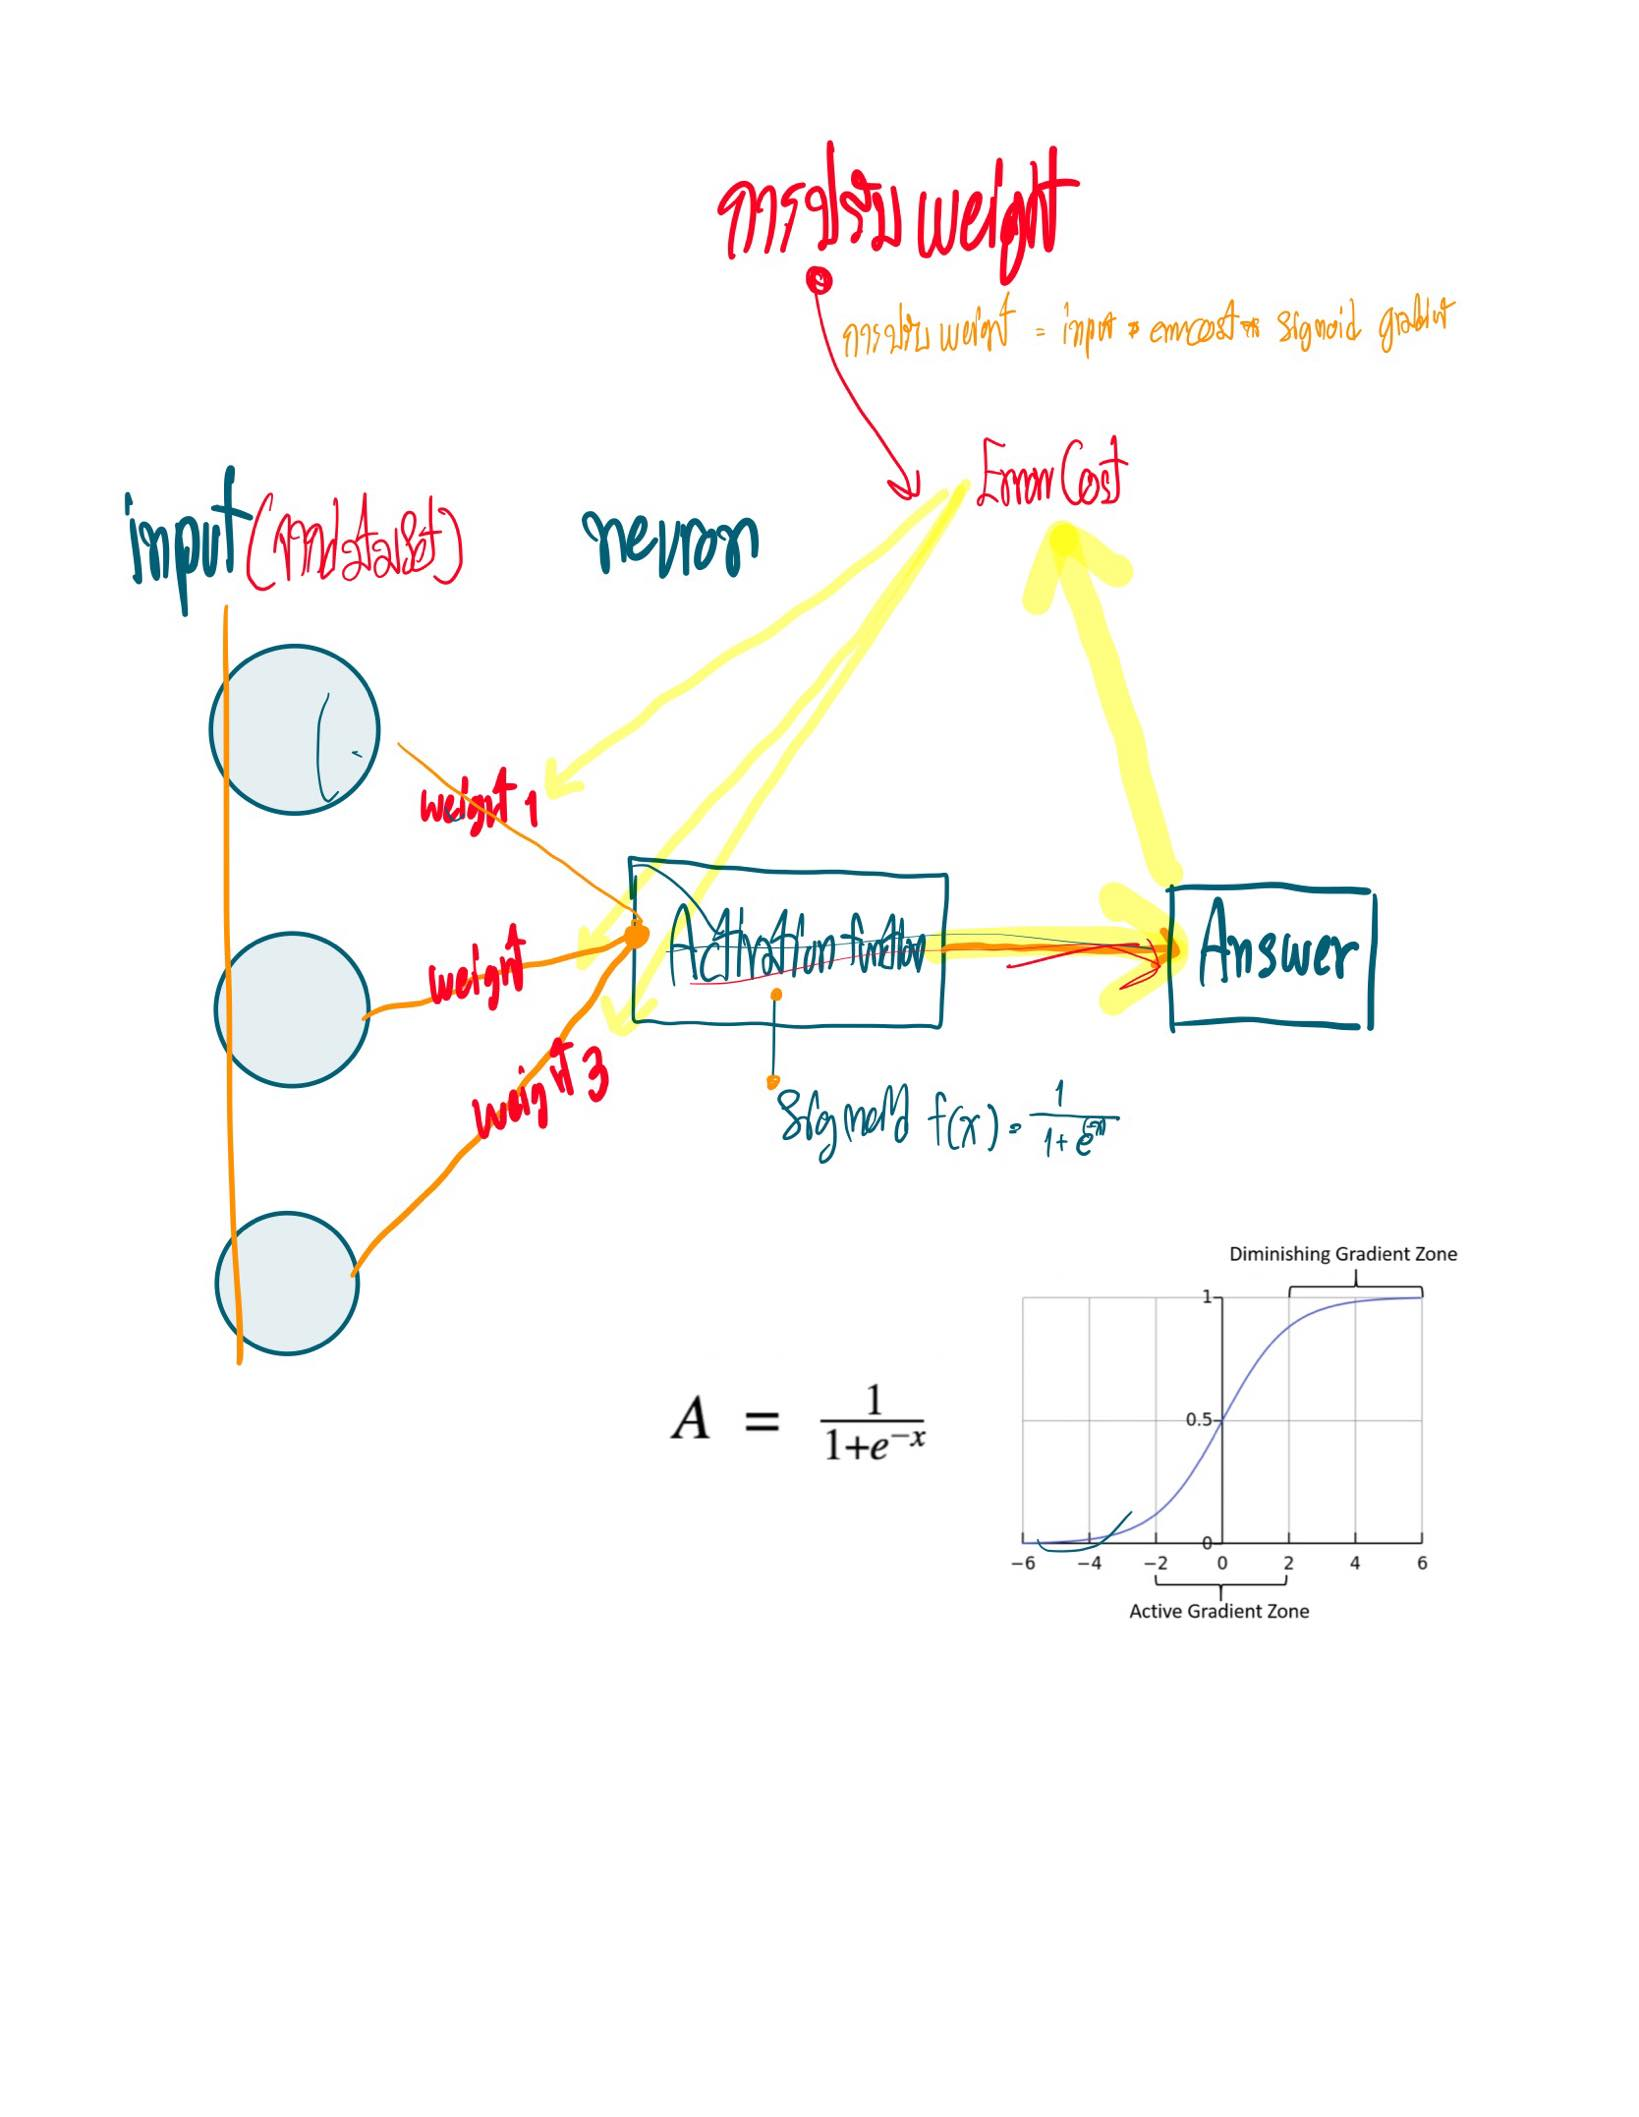 การปรับ weight
การปรับ weight = input * errorcost * sigmoid
Error Cost
input (จากดาต้าเซ็ต)
neuron
weight 1
weight
weight 3
Activation function
Answer
Sigmoid f(x) = 1 / 1 + e^(-x)
Diminishing Gradient Zone
A = 1 / 1+e^−x
1
0.5
0
−6 −4 −2 0 2 4 6
Active Gradient Zone